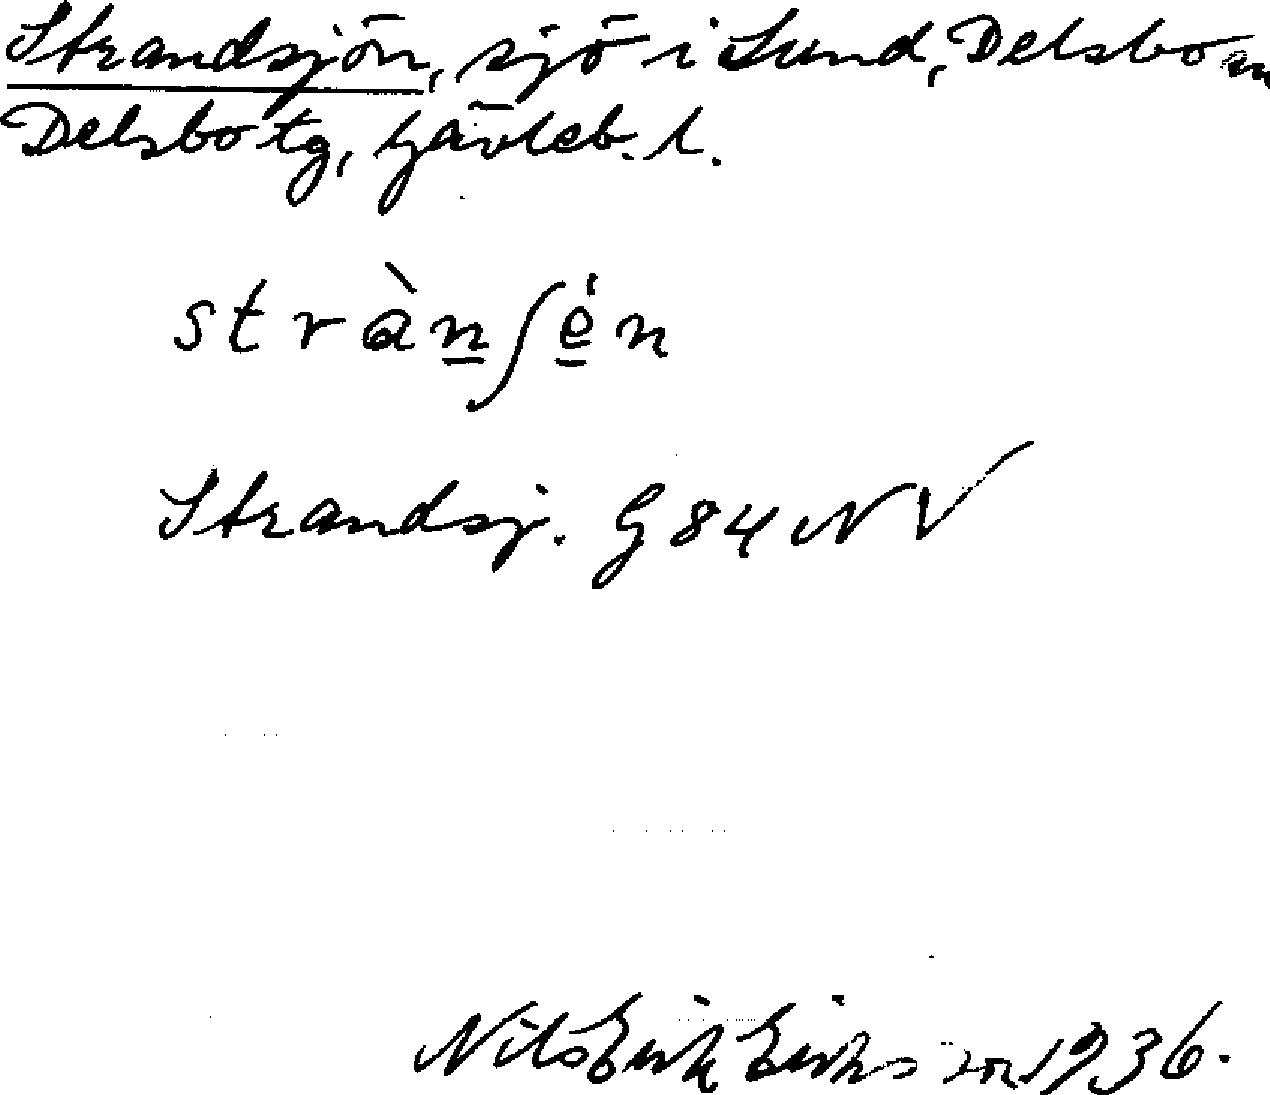 Strandsjön, sjö i Sund, Delsbo sn
Delsbo tg, Gävleb. l.
strànʃėn
Strandsj. G 84 NV
Nils Erik Eriksson 1936.